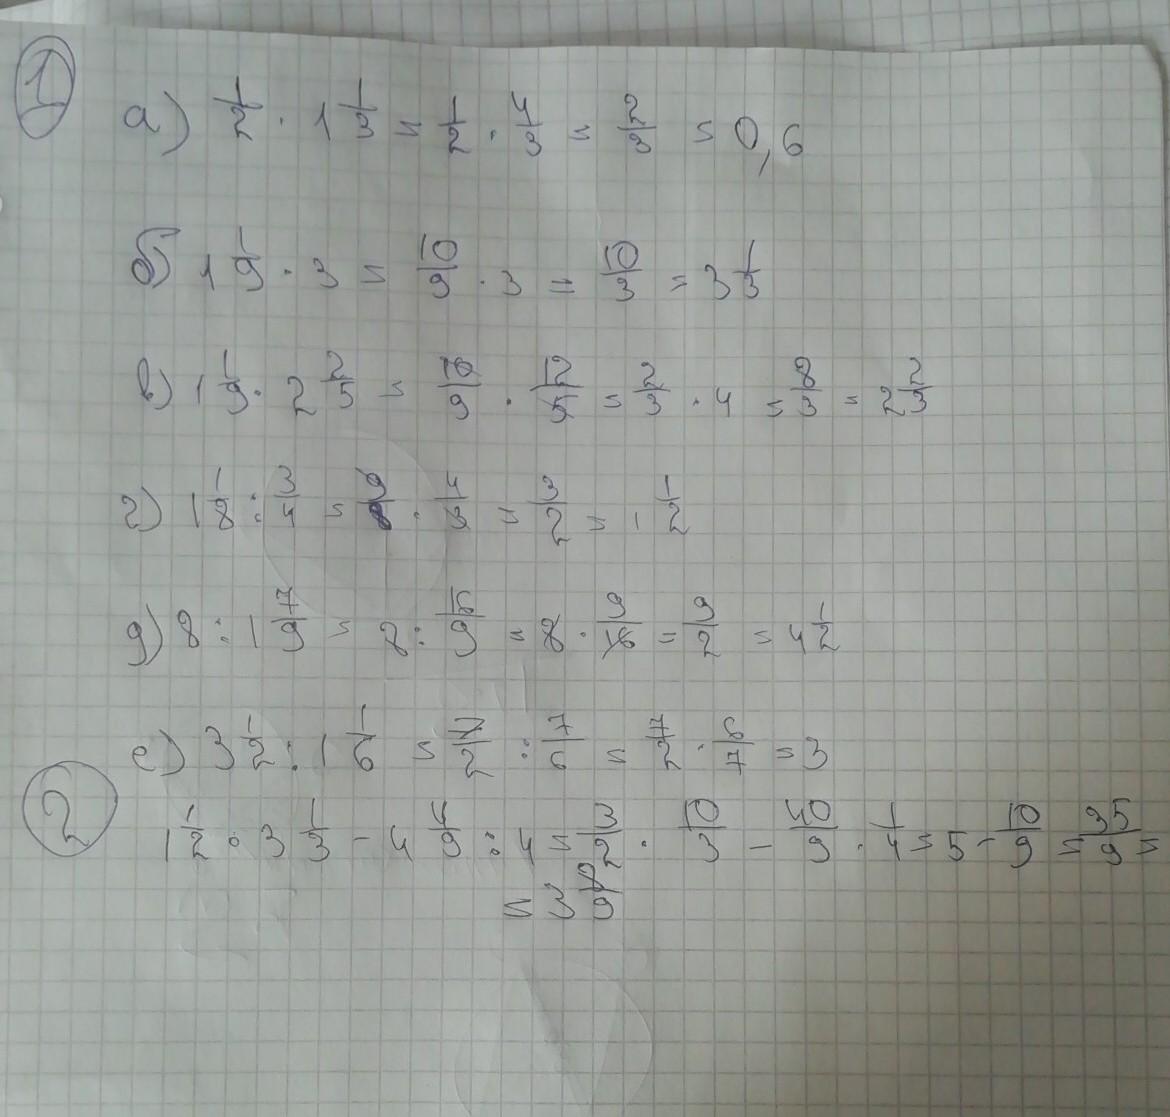 1
а) 1/2 · 1 1/3 = 1/2 · 4/3 = 2/3 = 0,6
б) 1 1/9 · 3 = 10/9 · 3 = 10/3 = 3 1/3
в) 1 1/9 · 2 2/5 = 10/9 · 12/5 = 2/3 · 4 = 8/3 = 2 2/3
г) 1 1/8 : 3/4 = 9/8 · 4/3 = 3/2 = 1 1/2
д) 8 : 1 7/9 = 8 : 16/9 = 8 · 9/16 = 9/2 = 4 1/2
е) 3 1/2 : 1 1/6 = 7/2 : 7/6 = 7/2 · 6/7 = 3
2
1 1/2 · 3 1/3 - 4 4/9 : 4 = 3/2 · 10/3 - 40/9 · 1/4 = 5 - 10/9 = 35/9 =
= 3 8/9